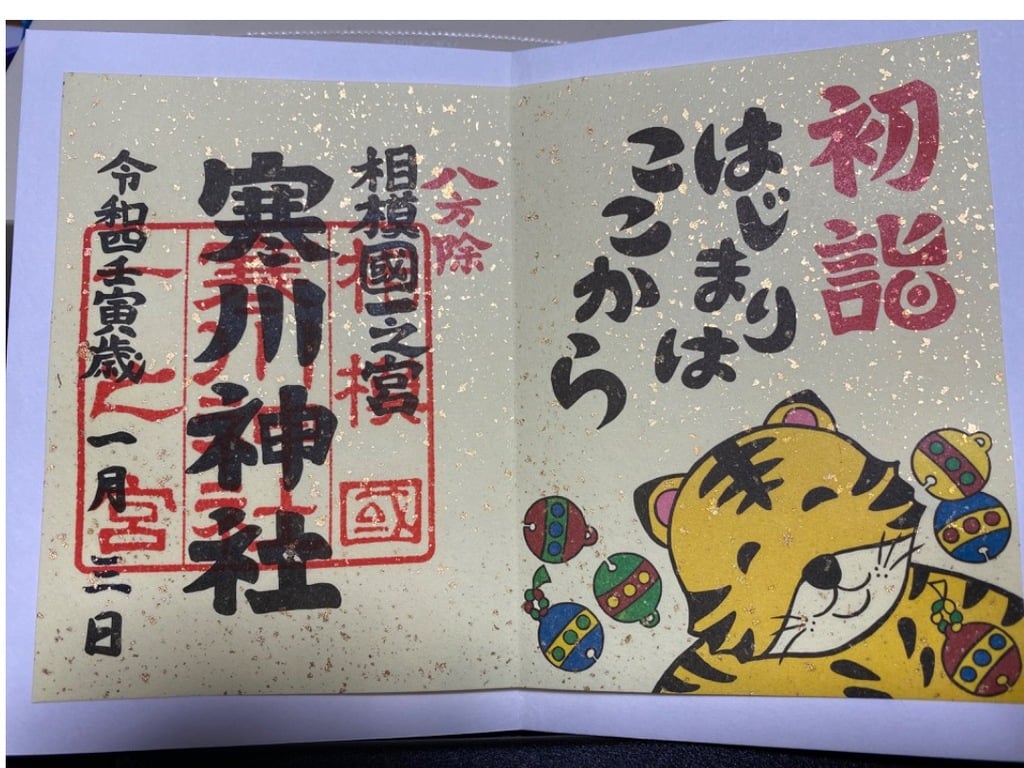 初詣
はじまりは
まりは
ここから
八方除
相模國一之宮
寒川神社
令和四壬寅歳 一月 三日
相模國
寒川神社
一之宮